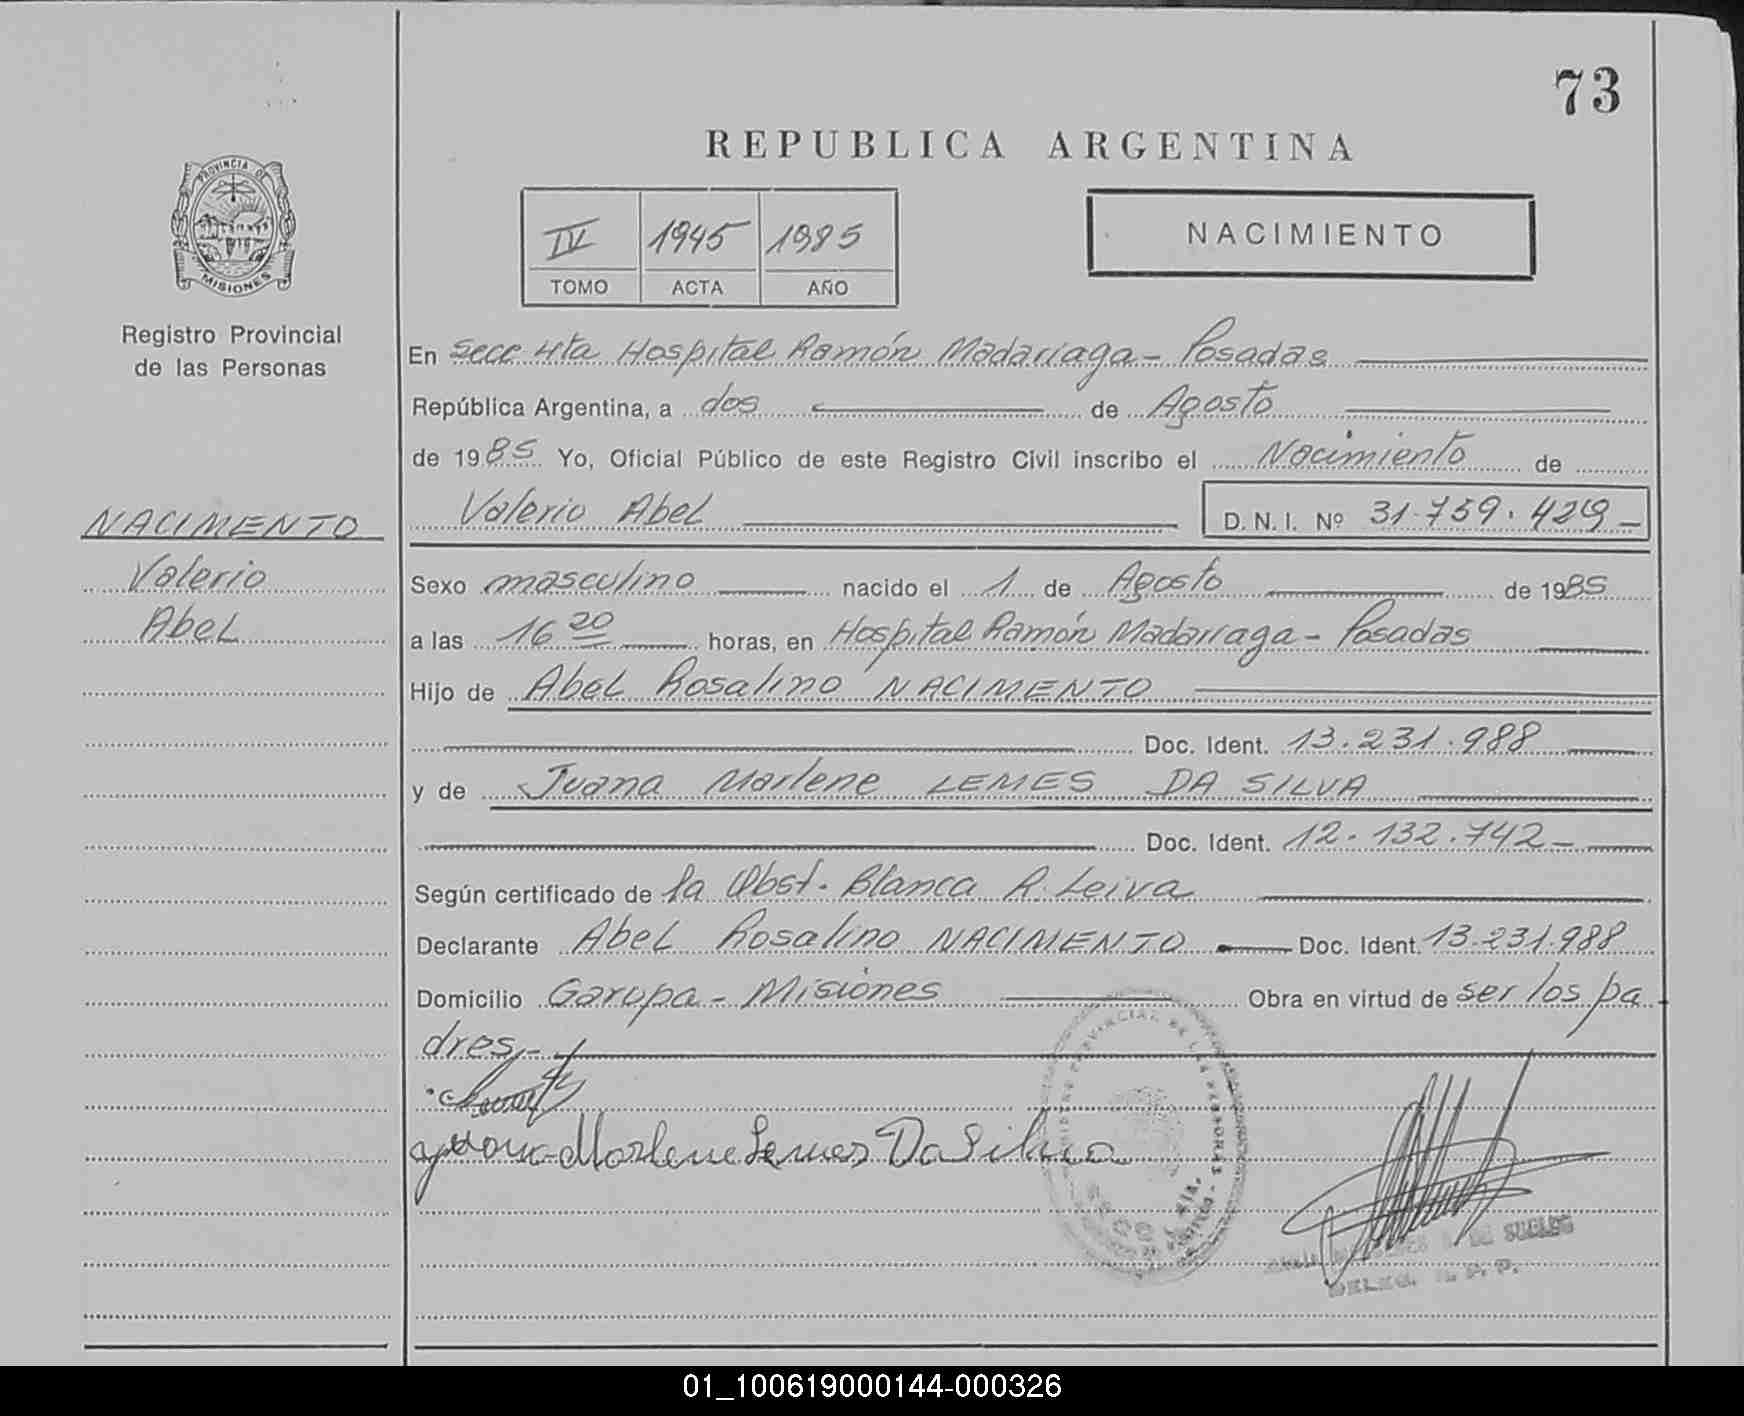 73
REPUBLICA ARGENTINA
PROVINCIA DE
MISIONES
IV 1945 1985
TOMO ACTA AÑO
NACIMIENTO
Registro Provincial
de las Personas
NACIMENTO
Valerio
Abel
En Secc 4ta Hospital Ramón Madariaga - Posadas
República Argentina, a dos de Agosto
de 1985 Yo, Oficial Público de este Registro Civil inscribo el Nacimiento de
Valerio Abel D.N.I. Nº 31.759.429 -
Sexo masculino nacido el 1 de Agosto de 1985
a las 16 20 horas, en Hospital Ramón Madarriaga - Posadas
Hijo de Abel Rosalino NACIMENTO
Doc. Ident. 13.231.988
y de Juana Marlene LEMES DA SILVA
Doc. Ident. 12.132.742 -
Según certificado de la Obst. Blanca R. Leiva
Declarante Abel Rosalino NACIMENTO Doc. Ident. 13.231.988
Domicilio Garupa - Misiones Obra en virtud de ser los pa
dres.-
Marlene Lemes Da Silva
01_100619000144-000326